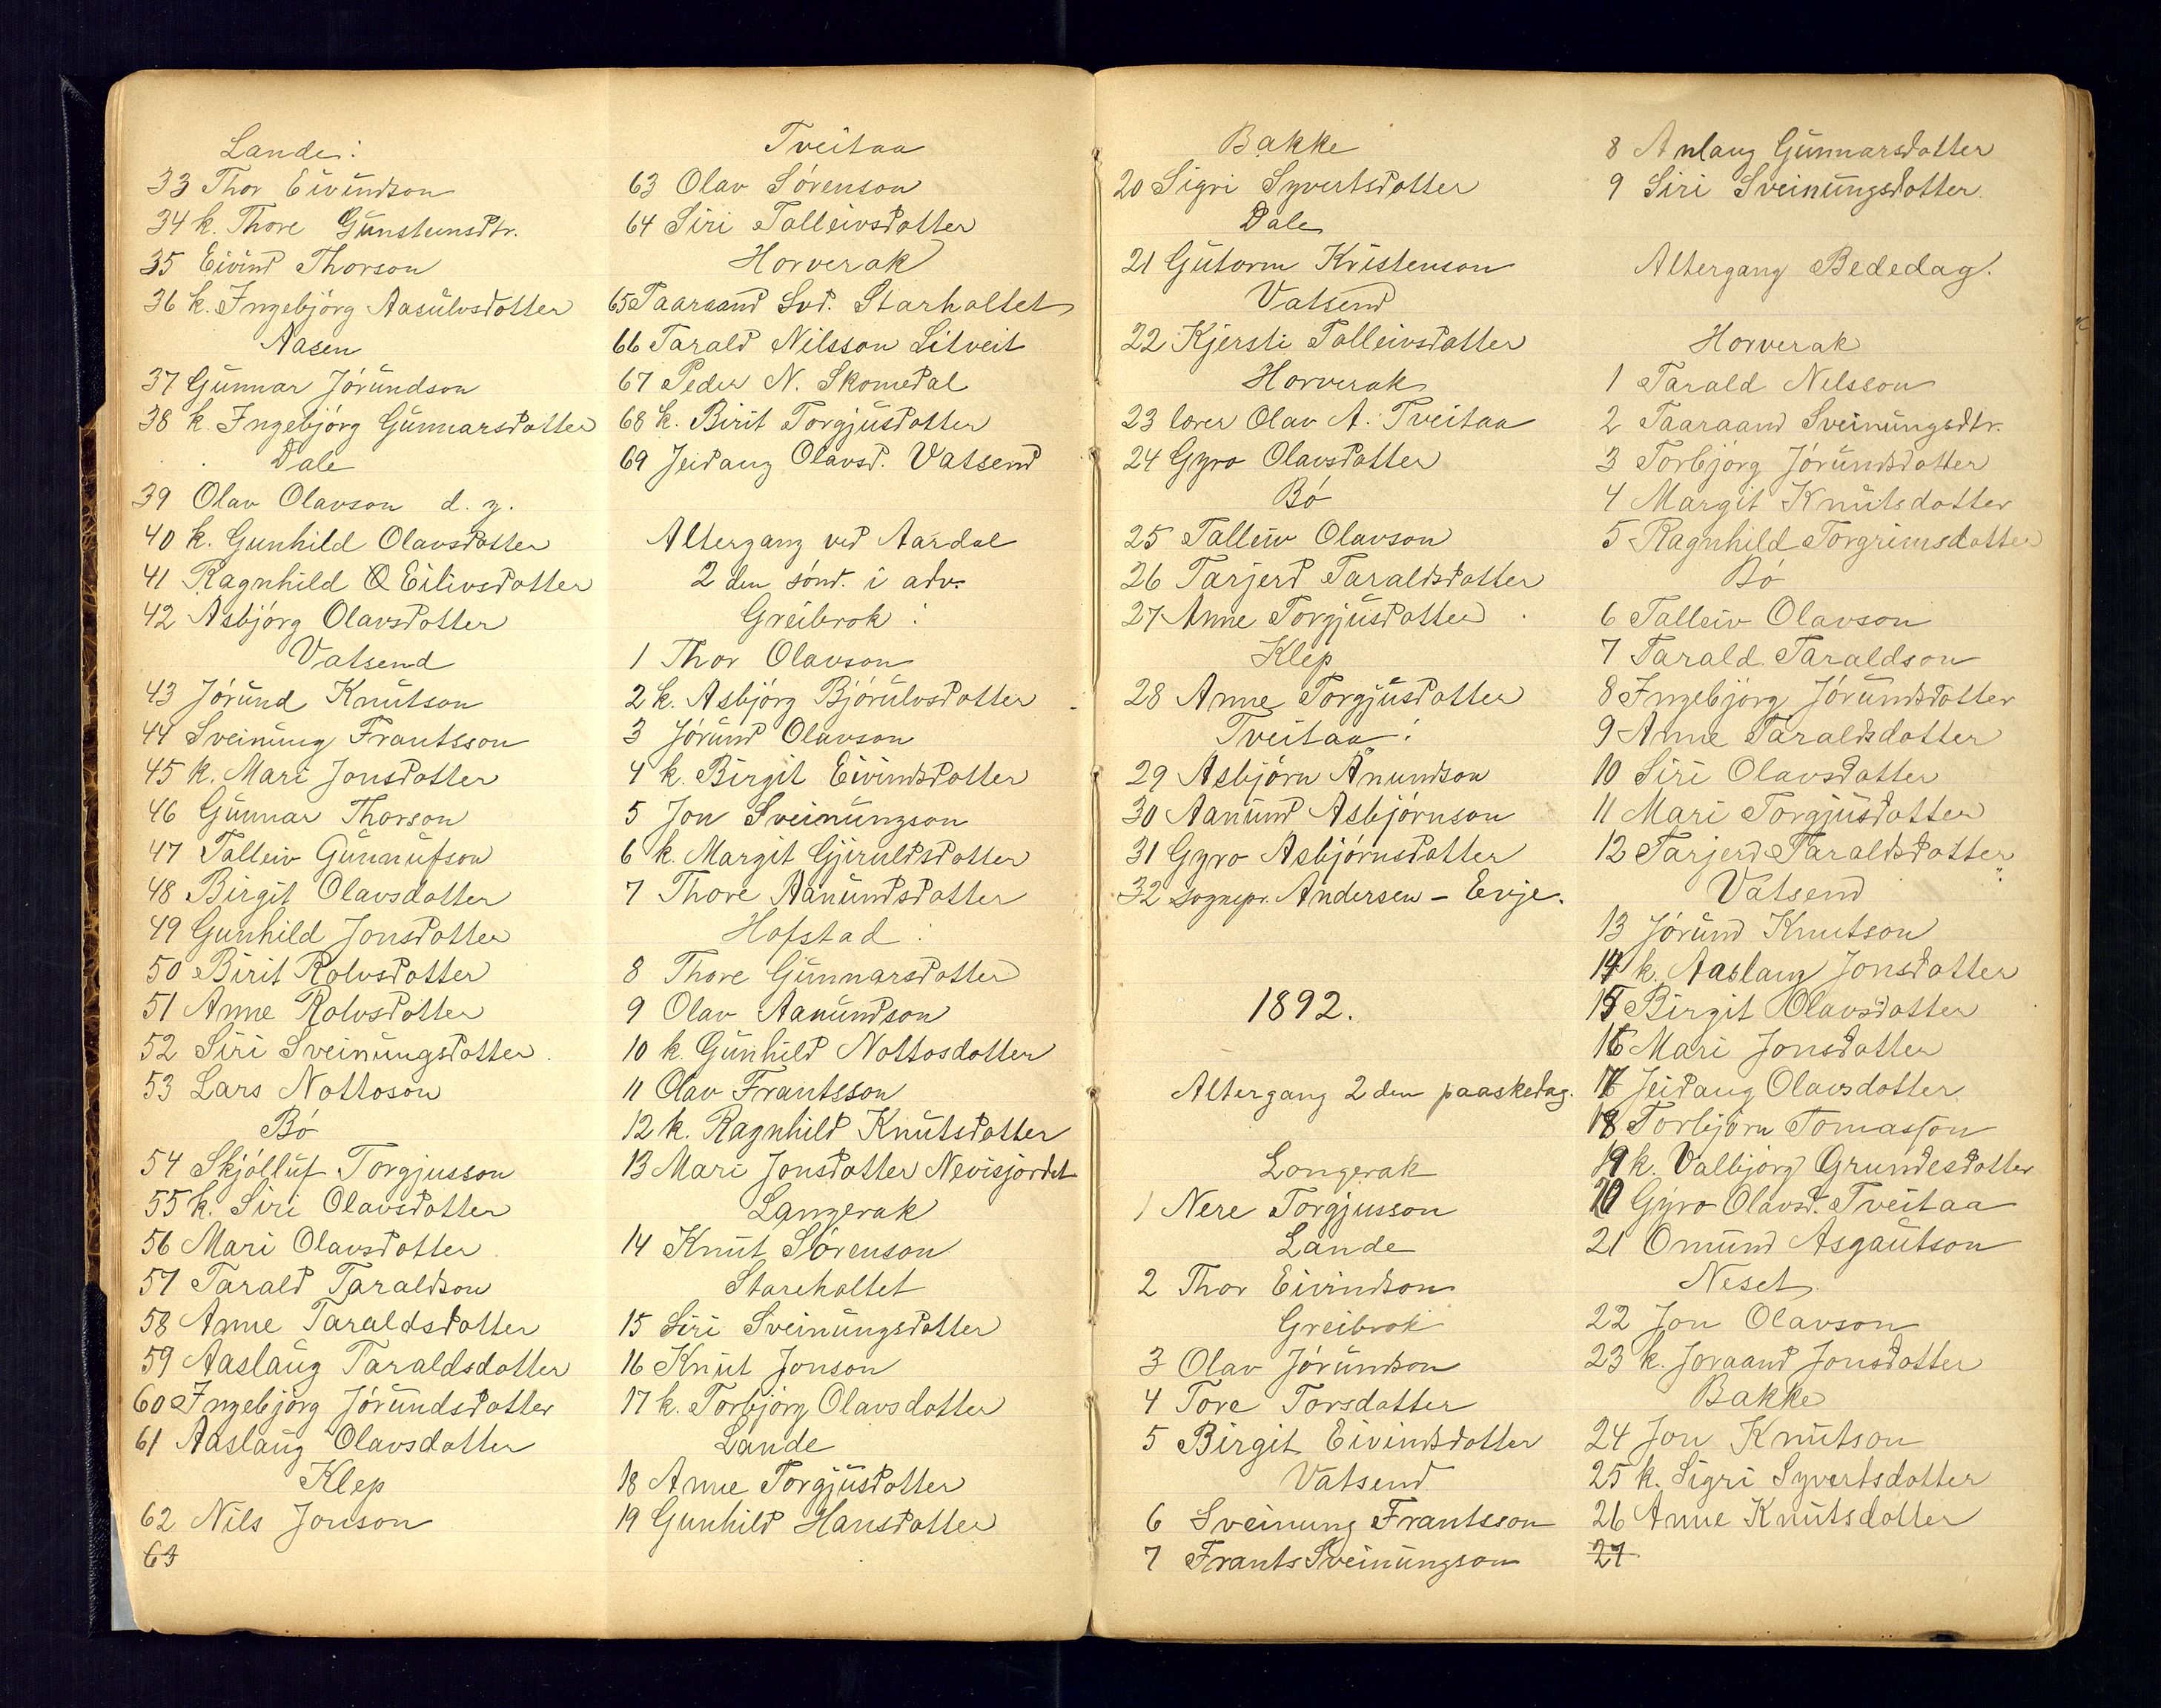 Lande:
33 Thor Eivindson
34 k. Thore Gunsteinsdtr.
35 Eivind Thorson
36 k. Ingebjörg Aasulvsdotter
Aasen
37 Gunnar Jörundson
38 k. Ingebjörg Gunnarsdotter
Dale
39 Olav Olavson d. y.
40 k. Gunhild Olavsdotter
41 Ragnhild Eilivsdotter
42 Asbjörg Olavsdotter
Vatsend
43 Jörund Knutson
44 Sveinung Frantsson
45 k. Mari Jonsdotter
46 Gunnar Thorson
47 Talleiv Gunnufson
48 Birgit Olavsdotter
49 Gunhild Jonsdotter
50 Birit Rolvsdotter
51 Anne Rolvsdotter
52 Siri Sveinungsdotter.
53 Lars Nottoson
Bó
54 Skjólluf Torgjusson
55 k. Siri Olavsdotter
56 Mari Olavsdotter
57 Tarald Taraldson
58 Anne Taraldsdotter
59 Aaslaug Taraldsdotter
60 Ingebjörg Jörundsdotter
61 Aaslaug Olavsdotter
Klep
62 Nils Jonson
63
Tveitaa
63 Olav Sörenson
64 Siri Talleivsdotter
Horverak
65 Taaraand Svd. Starholtet
66 Tarald Nilsson Litveit
67 Peder N. Skomedal
68 k. Birit Torgjusdotter
69 Jeidaug Olavsd. Vatsend
Altergang ved Aardal
2 den sönd. i adv.
Greibrok:
1 Thor Olavson
2 k. Asbjörg Bjórulvsdotter
3 Jörund Olavson
4 k. Birgit Eivindsdotter
5 Jon Sveinungson
6 k. Margit Gjeruldsdotter
7 Thore Aanundsdotter
Hofstad:
8 Thore Gunnarsdotter
9 Olav Aanundson
10 k. Gunhild Nottosdotter
11 Olav Frantsson
12 k. Ragnhild Knutsdotter
13 Mari Jonsdotter Nevisjordet
Langerak
14 Knut Sörenson
Stareholtet
15 Siri Sveinungsdotter
16 Knut Jonson
17 k. Torbjörg Olavsdotter
Lande
18 Anne Torgjusdotter
19 Gunhild Hansdotter
Bakke
20 Sigri Syvertsdotter
Dale
21 Gutorm Kristenson
Vatsend
22 Kjersti Talleivsdotter
Horverak
23 lærer Olav A. Tveitaa
24 Gyro Olavsdotter
Bó
25 Talleiv Olavson
26 Tarjerd Taraldsdotter
27 Anne Torgjusdotter
Klep
28 Anne Torgjusdotter
Tveitaa:
29 Asbjörn Anundson
30 Aanund Asbjörnson
31 Gyro Asbjörnsdotter
32 sognepr. Andersen - Evje.
1892.
Altergang 2 den paaskedag.
Longerak
1 Nere Torgjusson
Lande
2 Thor Eivindson
Greibrok
3 Olav Jörundson
4 Tore Torsdotter
5 Birgit Eivindsdotter
Vatsend
6 Sveinung Frantsson
7 Frants Sveinungson
8 Anlaug Gunnarsdotter
9 Siri Sveinungsdotter
Altergang Bededag.
Horverak
1 Tarald Nilsson
2 Taaraand Sveinungsdtr.
3 Torbjörg Jörundsdotter
4 Margit Knutsdotter
5 Ragnhild Torgrimsdotter
Bó
6 Talleiv Olavson
7 Tarald Taraldson
8 Ingebjörg Jörundsdotter
9 Anne Taraldsdotter
10 Siri Olavsdatter
11 Mari Torgjusdotter
12 Tarjerd Taraldsdotter
Vatsend
13 Jörund Knutson
14 k. Aaslaug Jonsdotter
15 Birgit Olavsdotter
16 Mari Jonsdotter
17 Jeidaug Olavsdotter
18 Torbjörn Tomasson
19 k. Valbjörg Grundesdotter
20 Gyro Olavsd. Tveitaa
21 Omund Asgautson
Neset
22 Jon Olavson
23 k. Joraand Jonsdotter
Bakke
24 Jon Knutson
25 k. Sigri Syvertsdotter
26 Anne Knutsdotter
27